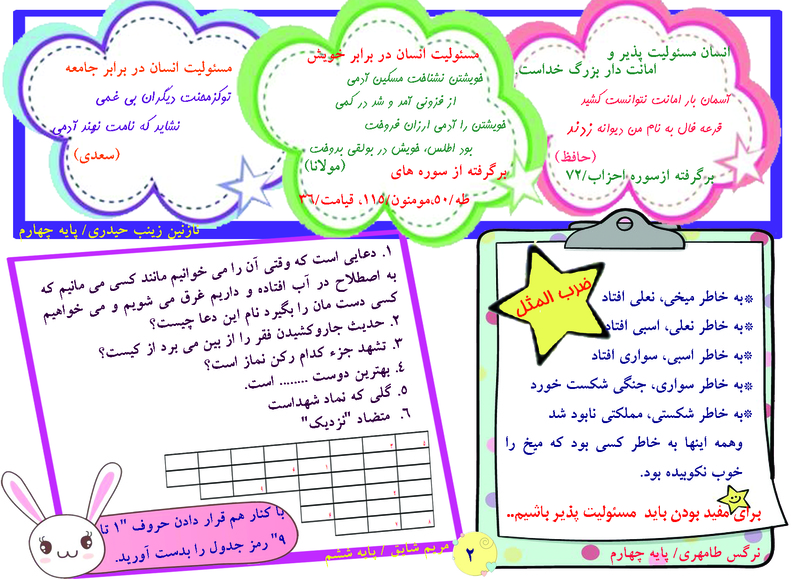 انسان مسئولیت پذیر و
امانت دار بزرگ خداست.
آسمان بار امانت نتوانست کشید
قرعه فال به نام من دیوانه زدند
(حافظ)
برگرفته ازسوره احزاب/۷۲
مسئولیت انسان در برابر خویش
خویشتن نشناخت مسکین آدمی
از فزونی آمد و شد در کمی
خویشتن را آدمی ارزان فروخت
بود اطلس، خویش در بولقی بدوخت
(مولانا)
برگرفته از سوره های
طه/۵۰،مومنون/۱۱۵، قیامت/۳۶
مسئولیت انسان در برابر جامعه
توکزمحنت دیگران بی غمی
نشاید که نامت نهند آدمی
(سعدی)
نازنین زینب حیدری/ پایه چهارم
ضرب المثل
*به خاطر میخی، نعلی افتاد
*به خاطر نعلی، اسبی افتاد
*به خاطر اسبی، سواری افتاد
*به خاطر سواری، جنگی شکست خورد
*به خاطر شکستی، مملکتی نابود شد
وهمه اینها به خاطر کسی بود که میخ را
خوب نکوبیده بود.
برای مفید بودن باید مسئولیت پذیر باشیم..
نرگس طامهری/ پایه چهارم
۱. دعایی است که وقتی آن را می خوانیم مانند کسی می مانیم که
به اصطلاح در آب افتاده و داریم غرق می شویم و می خواهیم
کسی دست مان را بگیرد نام این دعا چیست؟
۲. حدیث جاروکشیدن فقر را از بین می برد از کیست؟
۳. تشهد جزء کدام رکن نماز است؟
۴. بهترین دوست ........ است.
۵. گلی که نماد شهداست
۶. متضاد "نزدیک"
با کنار هم قرار دادن حروف "۱ تا
۹" رمز جدول را بدست آورید.
مریم شایق / پایه ششم
۲